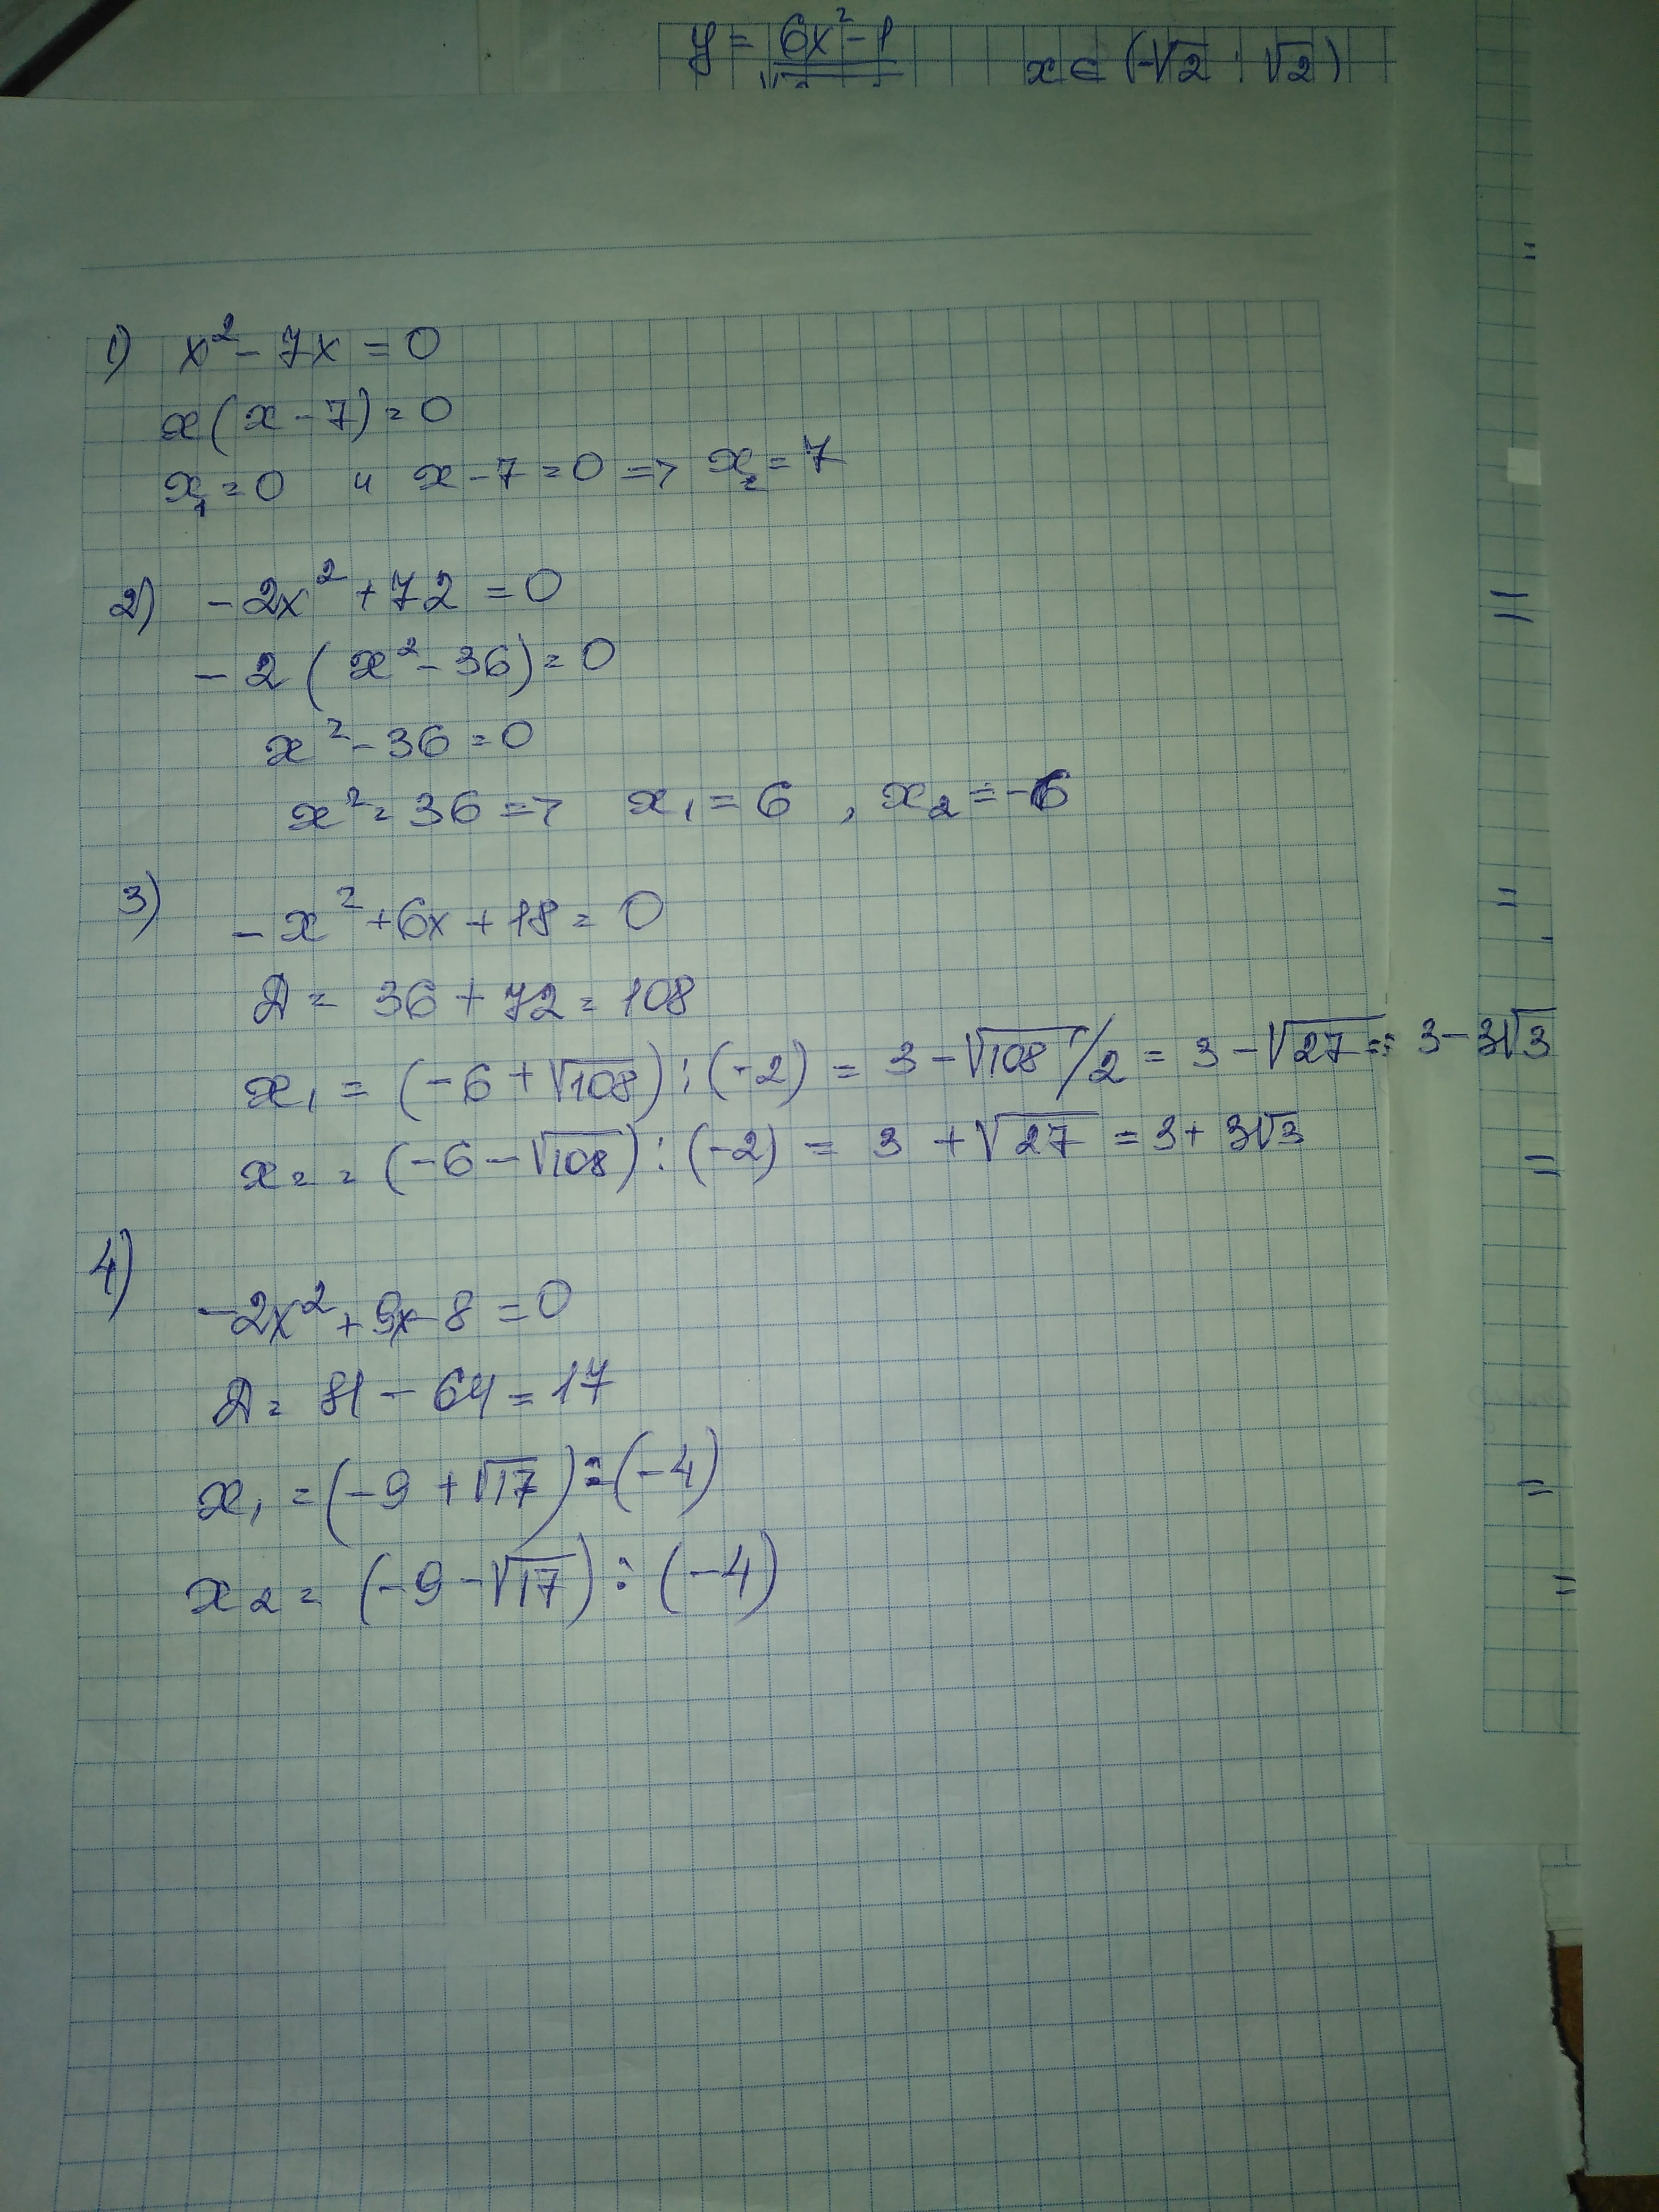 y = 6x² - 1    x ∈ (-√2 ; √2)
1) x² - 7x = 0
x(x - 7) = 0
x₁ = 0 и x - 7 = 0 => x₂ = 7
2) - 2x² + 72 = 0
- 2 (x² - 36) = 0
x² - 36 = 0
x² = 36 => x₁ = 6 , x₂ = -6
3) - x² + 6x + 18 = 0
Д = 36 + 72 = 108
x₁ = (-6 + √108) : (-2) = 3 - √108/2 = 3 - √27 = 3 - 3√3
x₂ = (-6 - √108) : (-2) = 3 + √27 = 3 + 3√3
4)
-2x² + 9x - 8 = 0
Д = 81 - 64 = 17
x₁ = (-9 + √17) : (-4)
x₂ = (-9 - √17) : (-4)